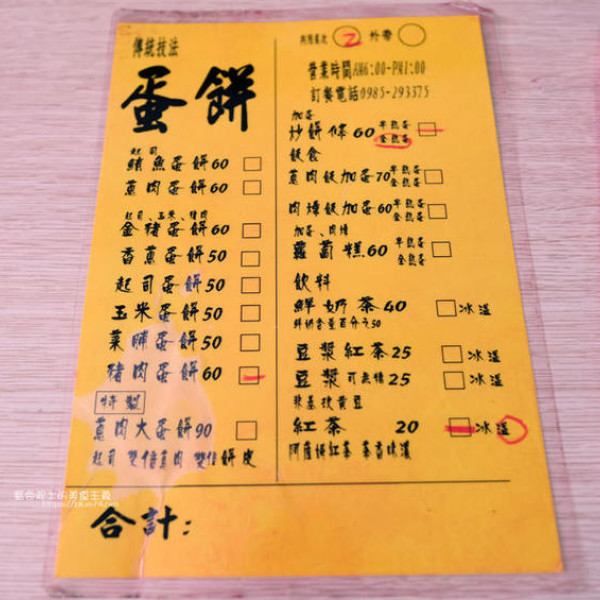 傳統技法
蛋餅
起司
鮪魚蛋餅60
蔥肉蛋餅60
起司、玉米、豬肉
金豬蛋餅60
香蕉蛋餅50
起司蛋餅50
玉米蛋餅50
菜脯蛋餅50
豬肉蛋餅60
特製
蔥肉大蛋餅90
起司 雙倍蔥肉 雙倍餅皮
2 外帶
營業時間AM6:00-PM1:00
訂餐電話0985-293375
加蛋
炒餅條60 半熟蛋
全熟蛋
飯食
蔥肉飯加蛋70 半熟蛋
全熟蛋
肉燥飯加蛋60 半熟蛋
全熟蛋
加蛋、肉燥
蘿蔔糕60 半熟蛋
全熟蛋
飲料
鮮奶茶40 冰溫
鮮奶含量百分之50
豆漿紅茶25 冰溫
豆漿可無糖25 冰溫
非基改黃豆
紅茶 20 冰溫
阿薩姆紅茶 茶香味濃
合計: